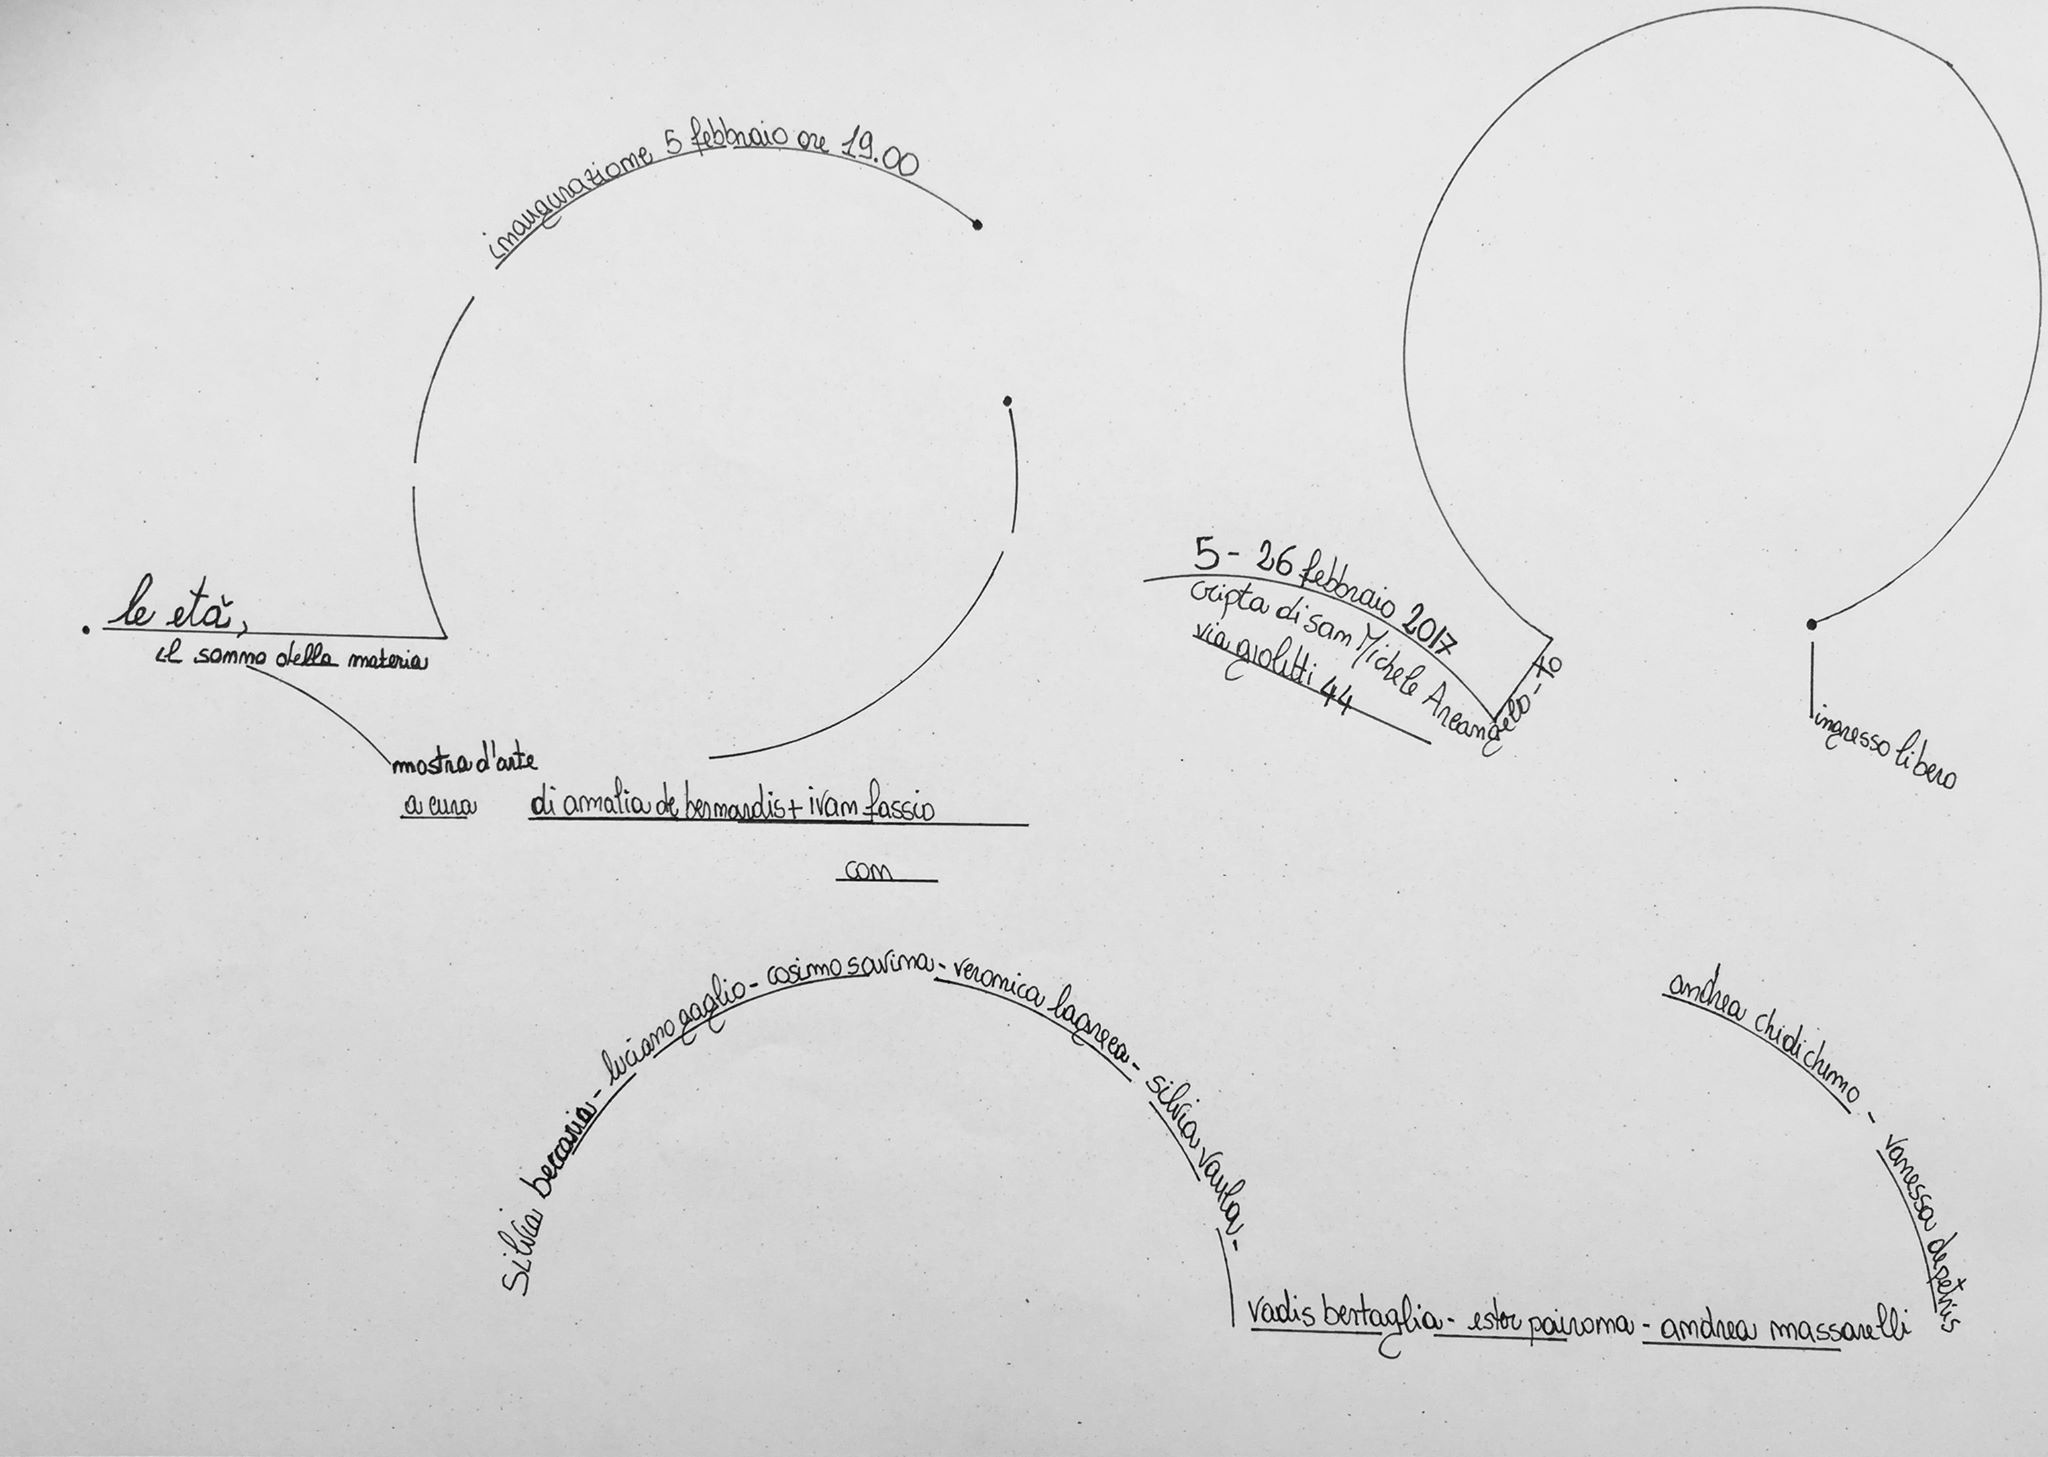 inaugurazione 5 febbraio ore 19.00
le età,
il sonno della materia
mostra d'arte
a cura di amalia de bernardis + ivan fassio
con
silvia beccaria - luciano gaglio - cosimo savina - veronica lagreca - silvia vaulà -
vadis bertaglia - ester pairona - andrea massarelli
andrea chidichimo - vanessa depetris
5 - 26 febbraio 2017
cripta di san Michele Arcangelo - TO
via giolitti 44
ingresso libero